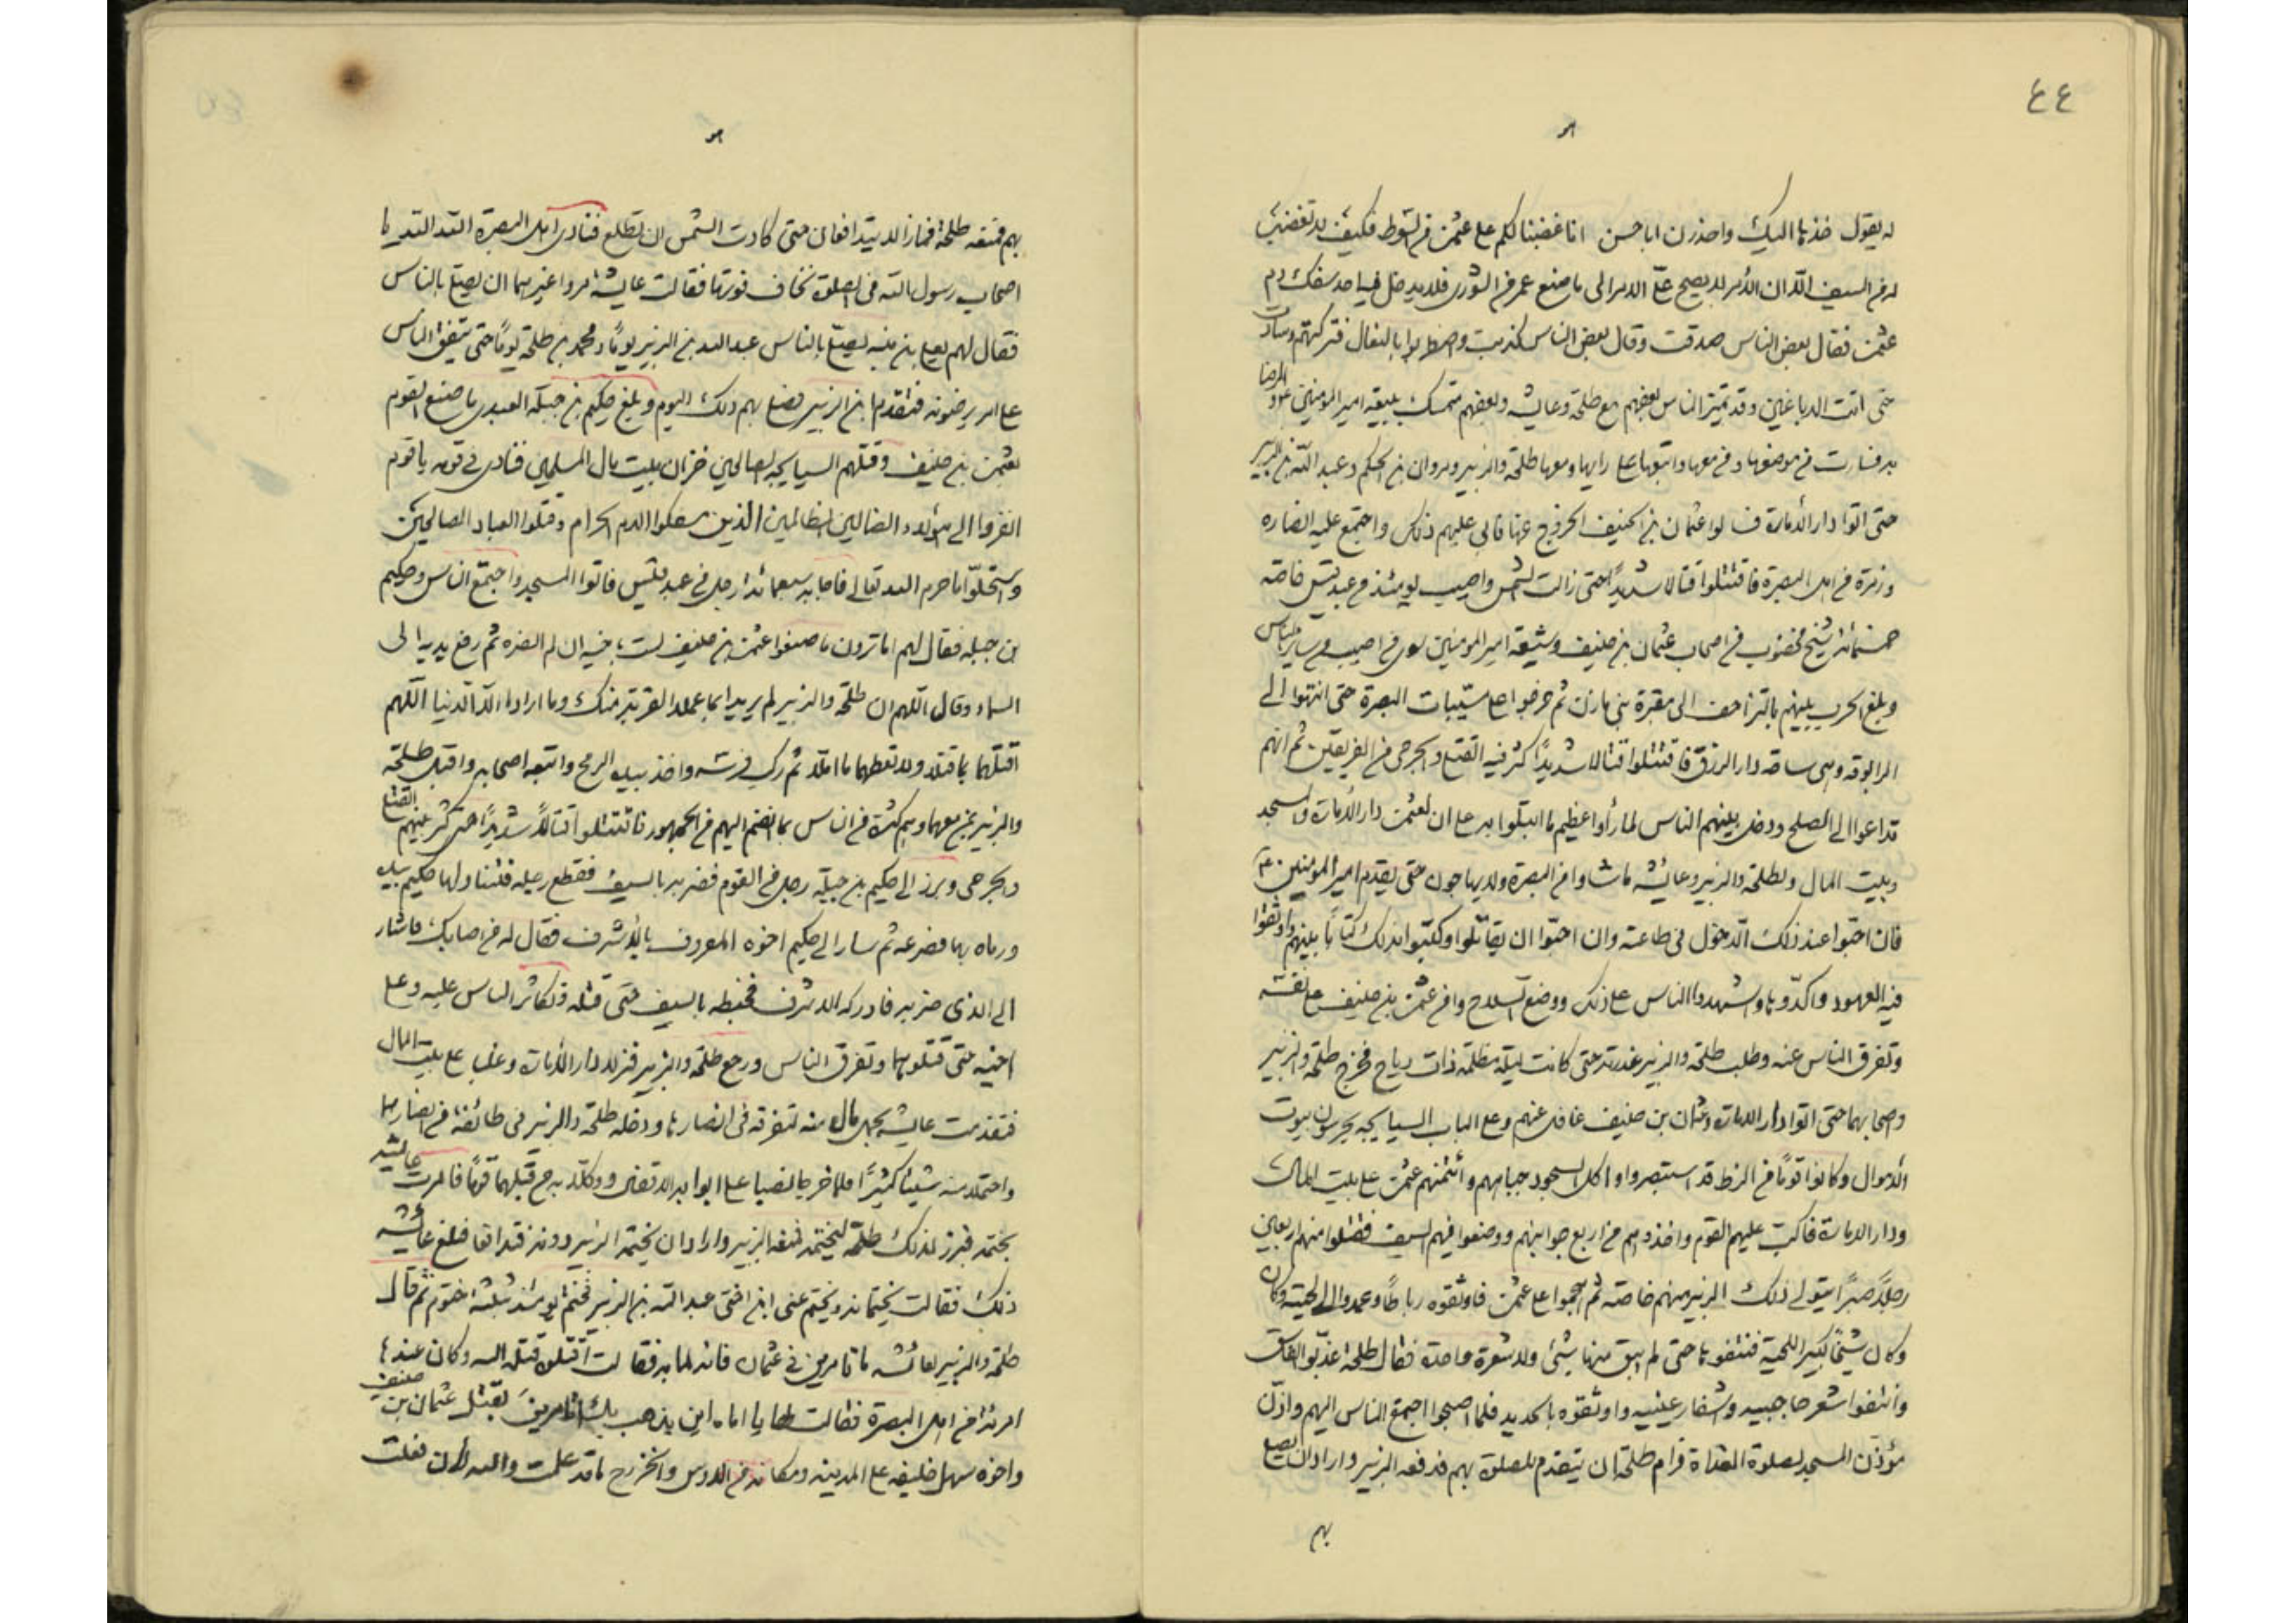 ٤٤
له يقول خذها اليك واحذرن ابا حسن انا غضبنا لكم على عثمن من السوط فكيف لا تغضب
من السيف الا ان الأمر لا يصح الا الى ما صنع عمر من الشورى فلا يدخل فيه احد سفك دم
عثمن فقال بعض الناس صدقت وقال بعض الناس كذبت واضطربوا بالنعال فتركتهم وسارت
حتى اتت الدباغين وقد تميّز الناس بعضهم مع طلحة وعايشه وبعضهم متمسك ببيعة امير المؤمنين والرضا
به فسارت من موضعها ومن معها واتبعها على رأيها ومعها طلحة والزبير ومروان بن الحكم وعبد الله بن الزبير
حتى اتوا دار الأمارة فسألوا عثمان بن الحنيف الخروج عنها فابى عليهم ذلك واجتمع عليه انصاره
وزمرة من اهل البصرة فاقتتلوا قتالا شديدًا حتى زالت الشمس واصيب يومئذ من عبد قيس خاصة
خمسمائة شيخ مخضوب من اصحاب عثمان بن حنيف وشيعة امير المؤمنين سوى من اصيب من سائر الناس
وبلغ الحرب بينهم بالتزاحف الى مقبرة بنى مازن ثم خرجوا على مسنيات البصرة حتى انتهوا الى
الرابوقه وهى ساحة دار الرزق فاقتتلوا قتالا شديدًا كثر فيه القتلى والجرحى من الفريقين ثم انهم
تداعوا الى الصلح ودخل بينهم الناس لما رأوا عظيم ما ابتلوا به على ان لعثمن دار الأمارة والمسجد
وبيت المال ولطلحة والزبير وعائشه ما شاوا من البصرة ولا يهاجون حتى يقدم امير المؤمنين ع
فان احبّوا عند ذلك الدخول فى طاعته وان احبّوا ان يقاتلوا وكتبوا بذلك كتابًا بينهم واوثقوا
فيه العهود واكّدوها واشهدوا الناس على ذلك ووضع السلاح وامن عثمن بن حنيف على نفسه
وتفرق الناس عنه وطلب طلحة والزبير غدرته حتى كانت ليلة مظلمة ذات رياح فخرج طلحة والزبير
واصحابهما حتى اتوا دار الامارة وعثمان بن حنيف غافل عنهم وعلى الباب السيابجه يحرسون بيوت
الأموال وكانوا قومًا من الزط قد استبصروا واكل السجود جباههم وائتمنهم عثمن على بيت المال
ودار الامارة فاكب عليهم القوم واخذوهم من اربع جوانبهم ووضعوا فيهم السيف فقتلوا منهم اربعين
رجلًا صبرًا يتولى ذلك الزبير منهم خاصة ثم هجموا على عثمن فاوثقوه رباطًا وعمدوا الى لحيته وكان
وكان شيخًا كثير اللحية فنتفوها حتى لم يبق منها شئ ولا شعرة واحدة فقال طلحة عذبوا الفاسق
وانتفوا شعر حاجبيه واشفار عينيه واوثقوه بالحديد فلما اصبحوا اجتمع الناس اليهم واذّن
مؤذّن المسجد لصلوة الغداة فرام طلحة ان يتقدم للصلوة بهم فدفعه الزبير واراد ان يصلى
بهم
بهم فمنعه طلحة فما زالا يتدافعان حتى كادت الشمس ان تطلع فنادى اهل البصرة الله الله يا
اصحاب رسول الله فى الصلوة نخاف فوتها فقالت عايشه مروا غيرهما ان يصلى بالناس
فقال لهم يعلى بن منيه يصلى بالناس عبد الله بن الزبير يومًا ومحمد بن طلحة يومًا حتى يتفق الناس
على امير يرضونه فتقدم ابن الزبير فصلى بهم ذلك اليوم وبلغ حكيم بن جبلة العبدى ما صنع القوم
بعثمن بن حنيف وقتلهم السيابجه الصالحين خزان بيت مال المسلمين فنادى فى قومه يا قوم
انفروا الى هؤلاء الضالين الظالمين الذين سفكوا الدم الحرام وقتلوا العباد الصالحين
واستحلّوا ما حرم الله تعالى فاجابه سبعمائة رجل من عبد قيس فاتوا المسجد واجتمع الناس وحكيم
بن جبله فقال لهم اما ترون ما صنعوا عثمن بن حنيف لست باخيه ان لم انصره ثم رفع يديه الى
السماء وقال اللهم ان طلحة والزبير لم يريدا بما عملا القربة منك وما ارادا الا الدنيا اللهم
اقتلهما بما قتلا ولا تعطهما ما املا ثم ركب فرسه واخذ بيده الرمح واتبعه اصحابه واقبل طلحة
والزبير بمن معهما وهم كثرة من الناس بما انضم اليهم من الجمهور فاقتتلوا قتالًا شديدًا حتى كثر بينهم القتلى
والجرحى وبرز الى حكيم بن جبلة رجل من القوم فضربه بالسيف فقطع رجله فتناولها حكيم بيده
ورماه بها فصرعه ثم سار الى حكيم اخوه المعروف بالأشرف فقال له من اصابك فاشار
الى الذى ضربه فادركه الاشرف فخبطه بالسيف حتى قتله وتكاثر الناس عليه وعلى
اخيه حتى قتلوهما وتفرق الناس ورجع طلحة والزبير فنزلا دار الأمارة وغلبا على بيت المال
فتقدمت عايشه بحمل مال منه لتفرقه فى انصارها ودخله طلحة والزبير فى طائفة من انصارهما
واحتملا منه شيئًا كثيرًا فلما خرجا نصبا على ابوابه الاقفال ووكلا به من قبلهما قومًا فامرت عايشه
بختمه فبرز لذلك طلحة ليختمه فمنعه الزبير واراد ان يختمه الزبير دونه فتدافعا فبلغ عائشه
ذلك فقالت يختمانه ويختم عنى ابن اختى عبد الله بن الزبير فختم يومئذ بثلثة ختوم ثم قال
طلحة والزبير لعائشه ما تامرين فى عثمان فانه لما به فقالت اقتلوه قتله الله وكان عندها
امرئة من اهل البصرة فقالت لها يا اماه اين يذهب بك اتامرين بقتل عثمان بن حنيف
واخوه سهل خليفه على المدينه ومكانه من الاوس والخزرج ما قد علمت والله لأن فعلت